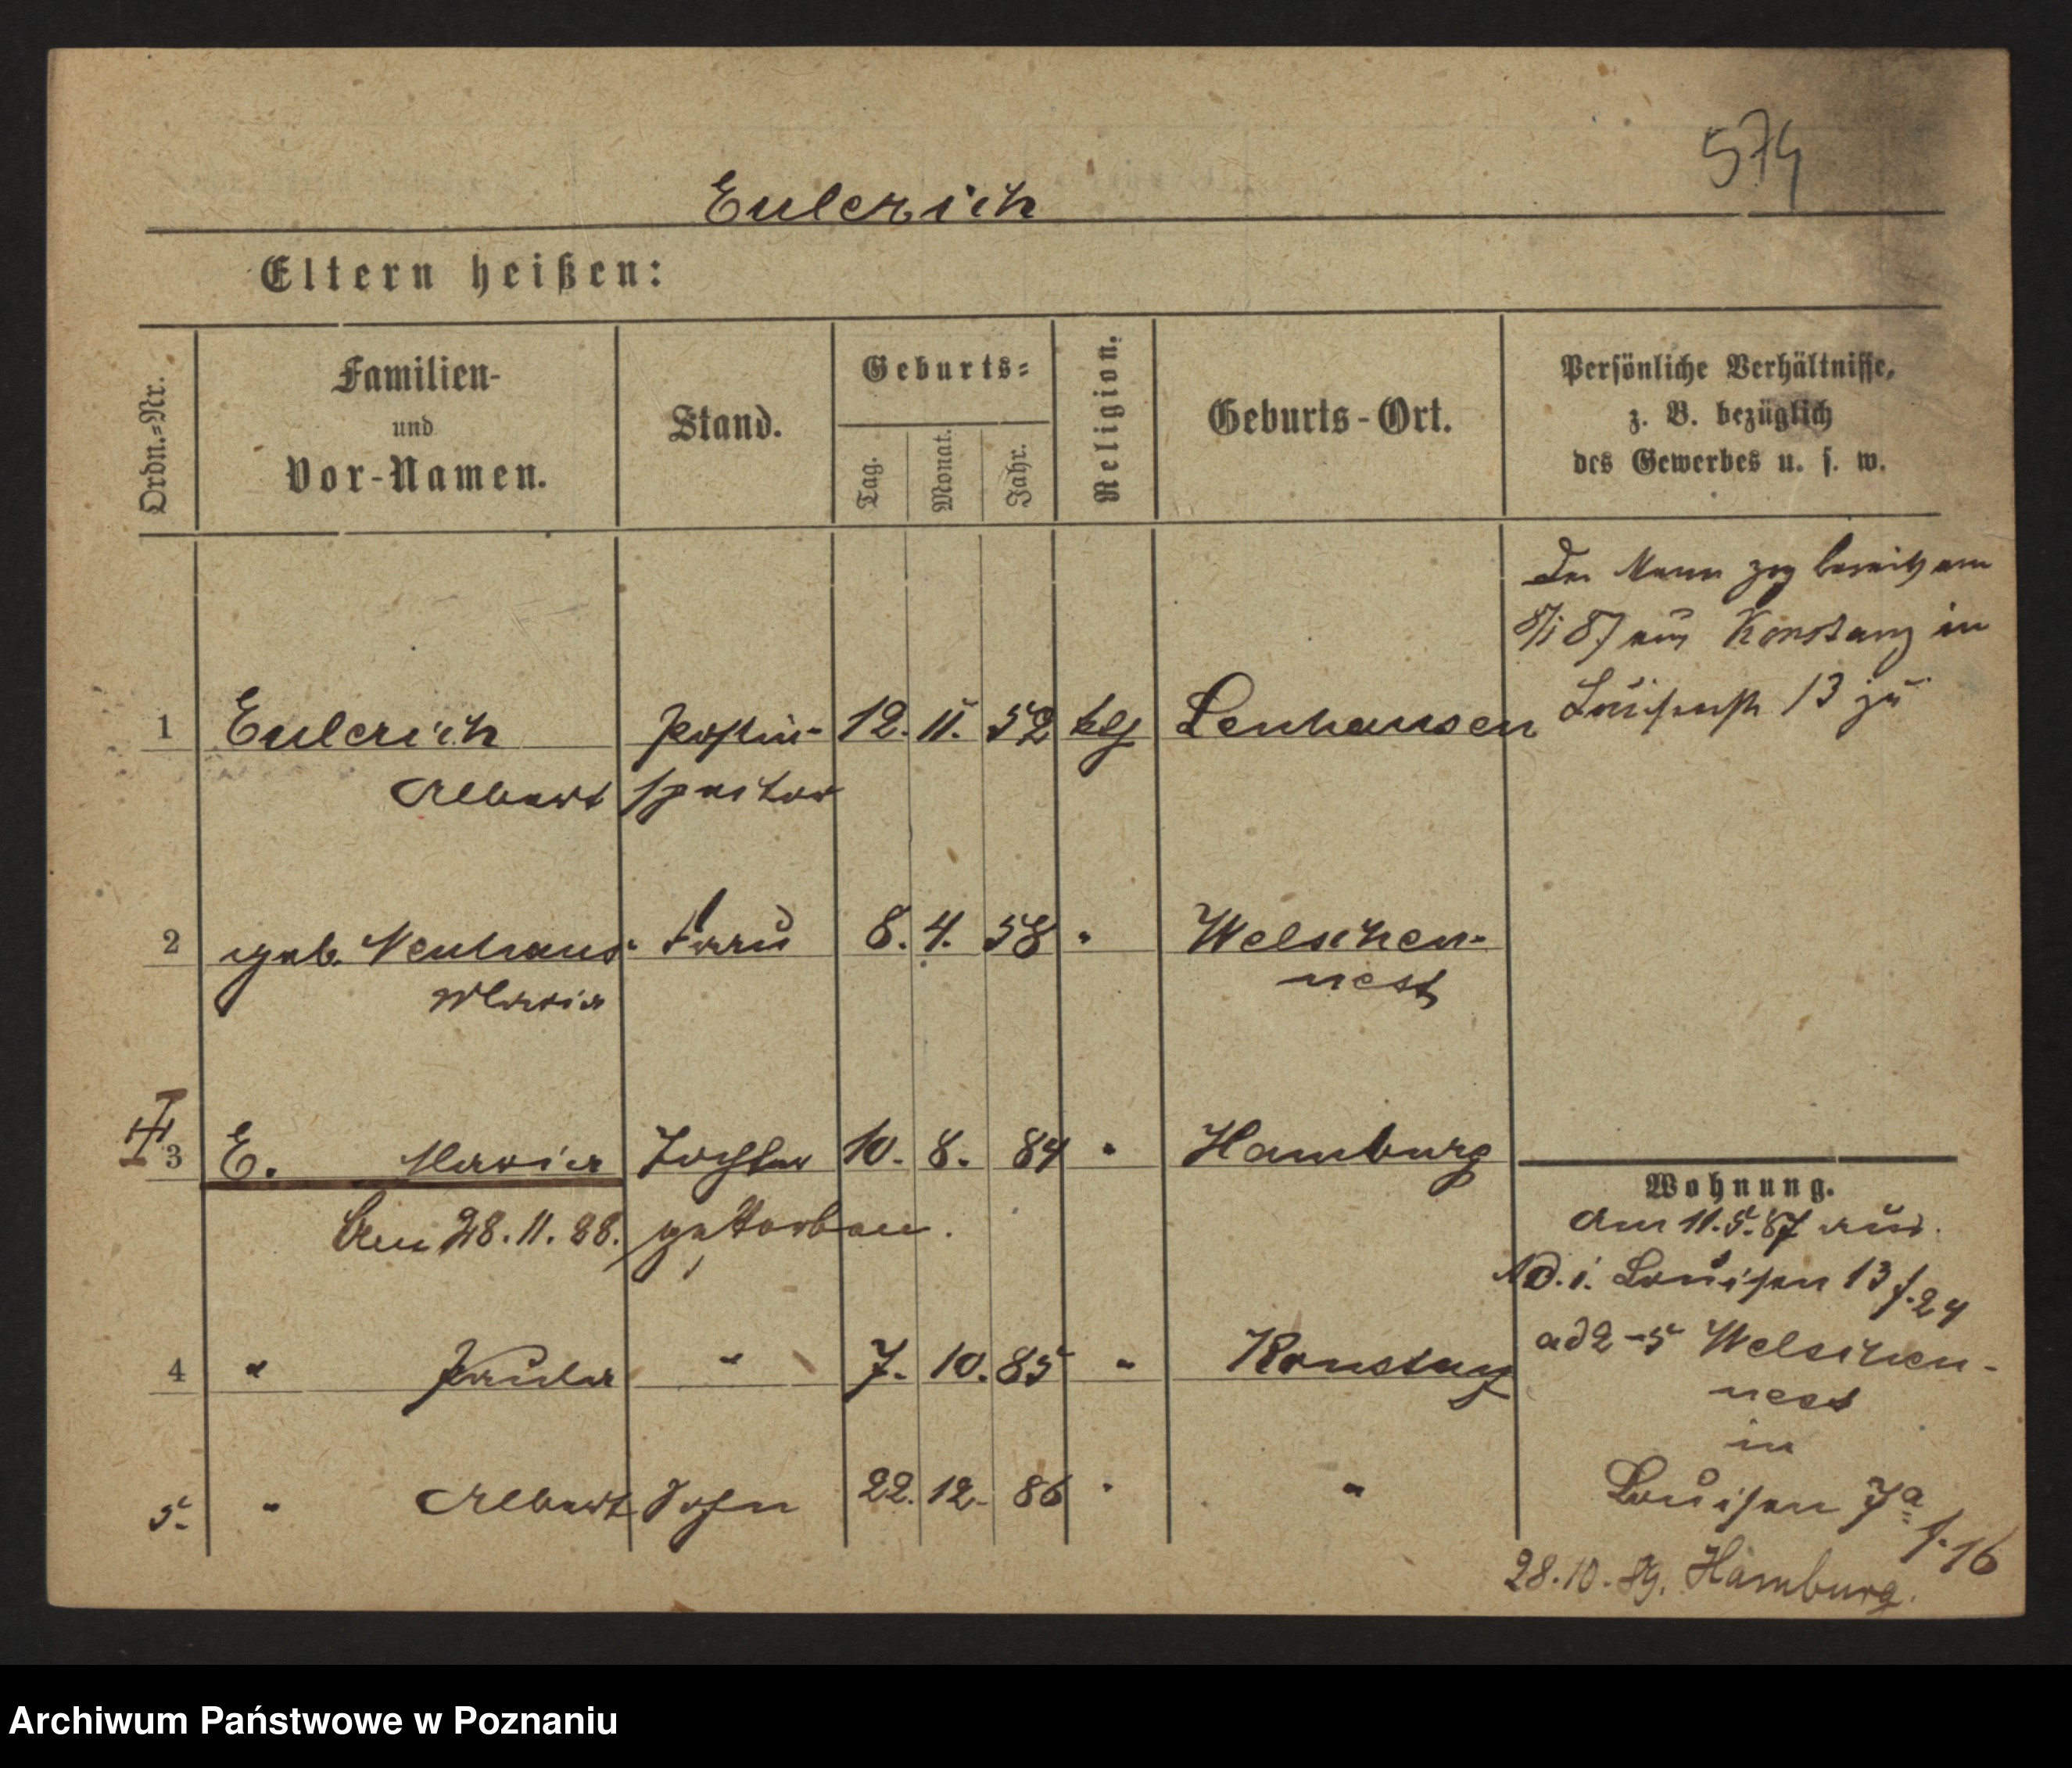 574
Eulerich
Eltern heißen:
Ordn.=Nr.
Familien-
und
Vor-Namen.
Stand.
Geburts=
Tag.
Monat.
Jahr.
Religion.
Geburts-Ort.
Persönliche Verhältnisse,
z. B. bezüglich
des Gewerbes u. s. w.
Der Mann zog bereits am
87 aus Konstanz in
Louisenstr 13 zu
1 Eulerich Postin- 12. 11. 52 ktl Lenhausen
Albert spektor
2 geb. Neuhaus Frau 8. 4. 58 " Welschen-
Maria nest
3 E. Maria Tochter 10. 8. 84 " Hamburg
Am 28. 11. 88. gestorben.
4 " Paula " 7. 10. 85 " Konstanz
5. " Albert Sohn 22. 12. 86 " "
Wohnung.
Am 11. 5. 87 aus
i. Louisen 13 f. 24
ad 2-5 Welschen-
nest
in
Louisen 7a
f. 16
28. 10. 89. Hamburg.
Archiwum Państwowe w Poznaniu